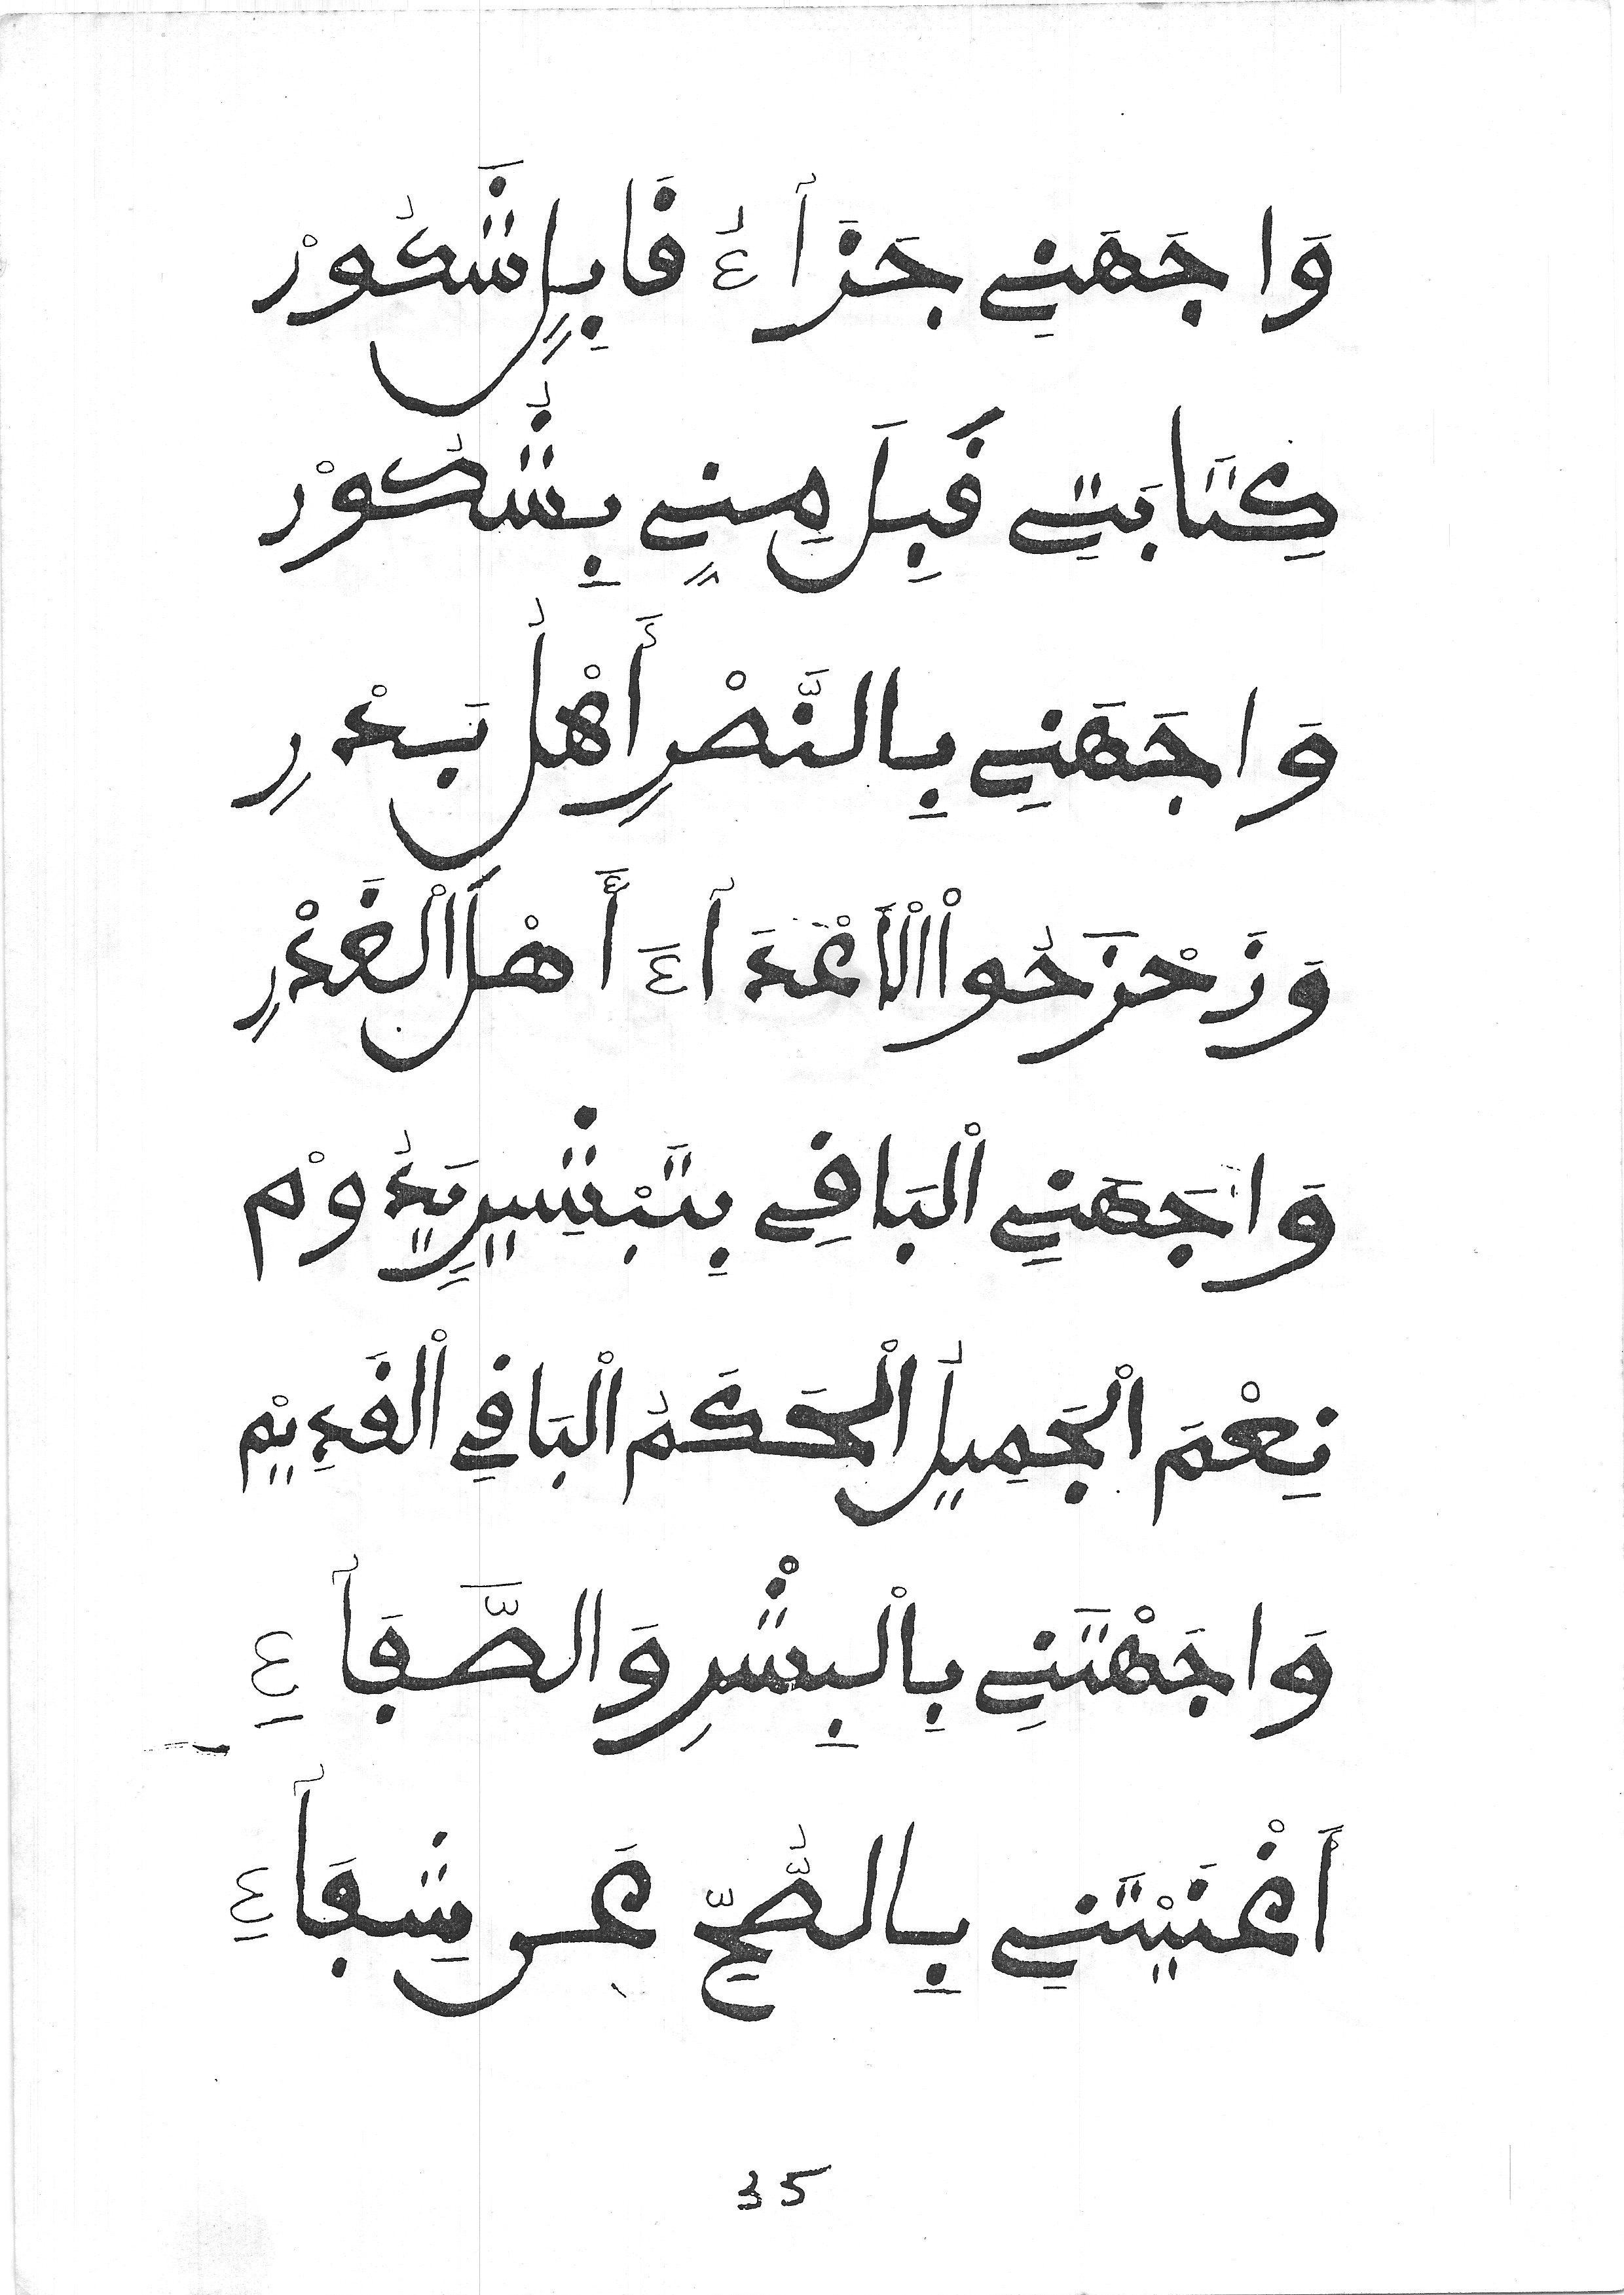 وَاجَهَنِي جَزَآءُ قَابِلٍ شَكُورْ
كِتَابَتِي قَبِلَ مِنِي بِشُكُورْ
وَاجَهَنِي بِالنَّصْرِ أَهْلُ بَدْرِ
وَزَحْزَحُواْ الْأَعْدَآءَ أَهْلَ الْغَدْرِ
وَاجَهَنِي الْبَاقِي بِتَبْشِيرٍ يَدُومْ
نِعْمَ الْجَمِيلُ الْحَكَمُ الْبَاقِي الْقَدِيمْ
وَاجَهْتَنِي بِالْبِشْرِ وَالصَّفَآءِ
أَغْنَيْتَنِي بِالصُّحِّ عَن شِفَآءِ
35